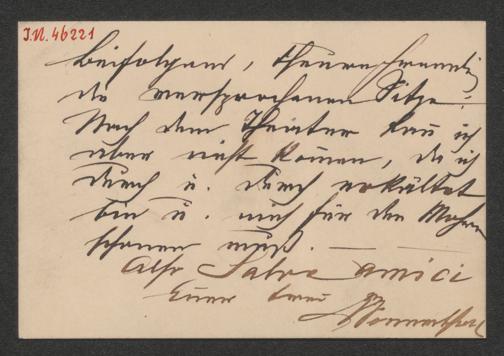 I.N. 46221
Beifolgend, theure Freundin
die versprochenen Sitze.
Nach dem Theater kañ ich
aber nicht kom̃en, da ich
durch u. durch erkältet
bin u. mich für den Mohren
schonen muß. —
Also Salve amici
Euer treu
Sonnenthal